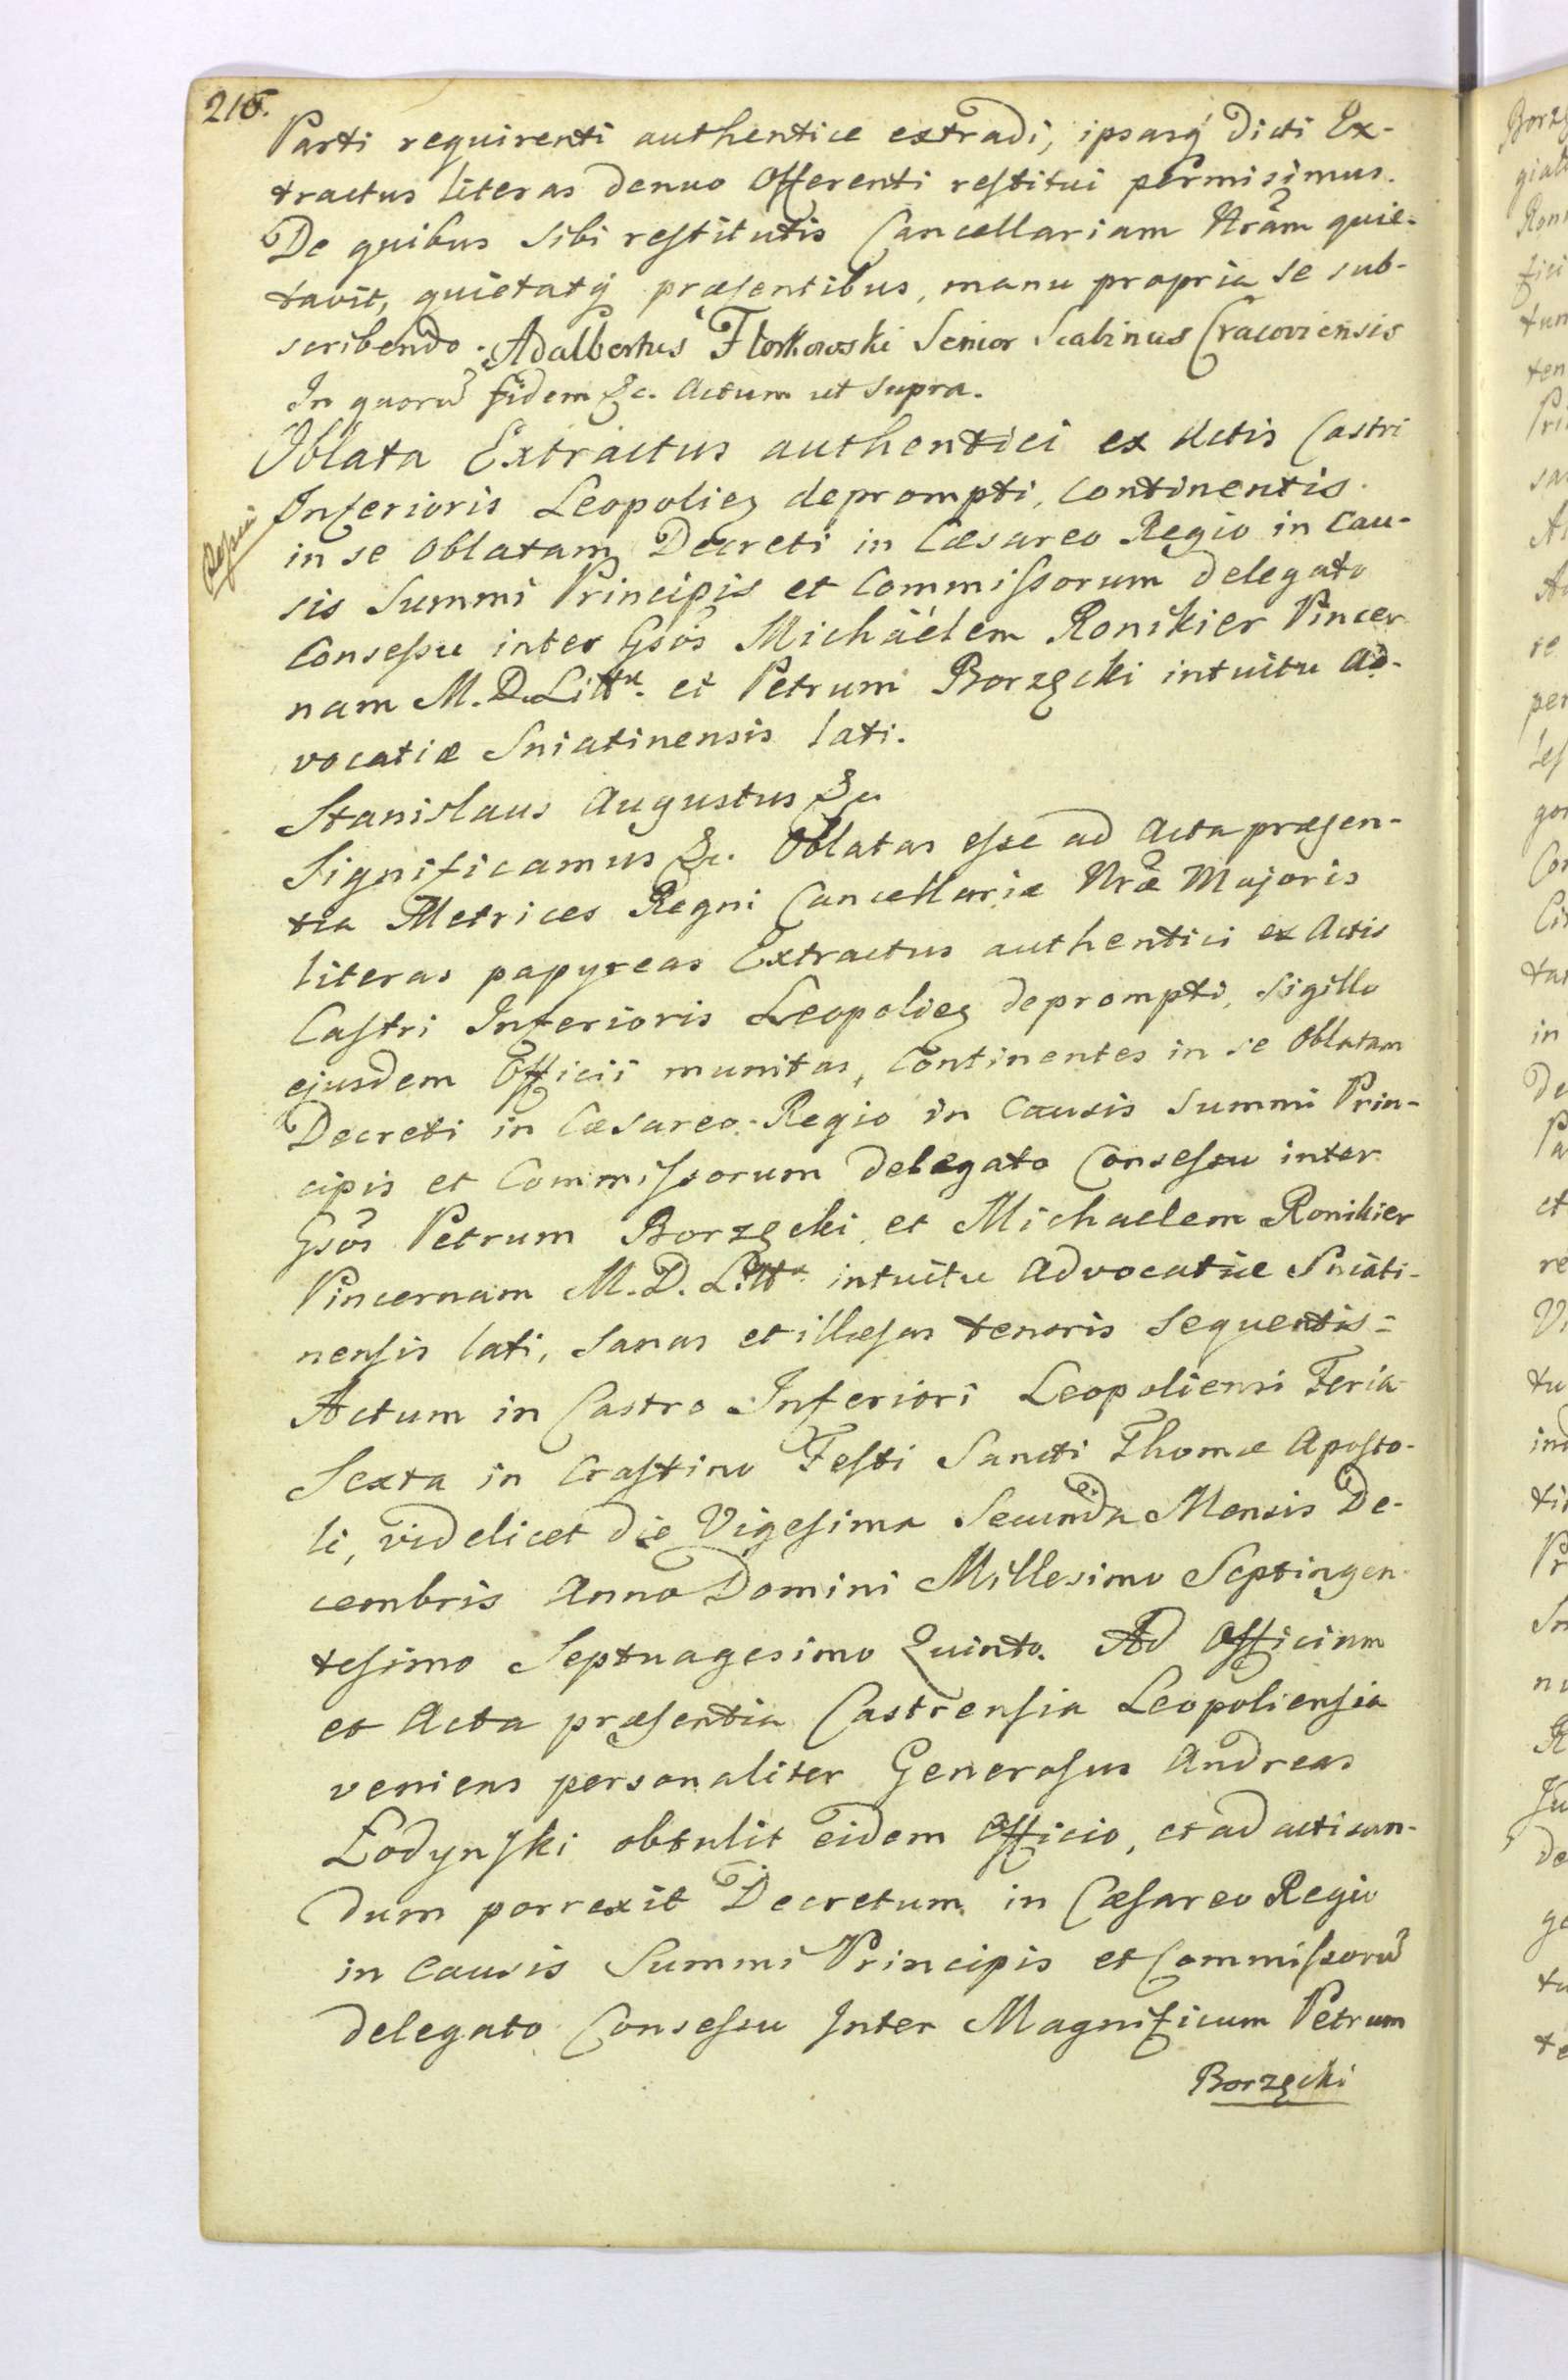 216.
Parti requirenti authentice extradi, ipsasq́ dicti Ex-
tractus literas denuo Offerenti restitui permisimus.
De quibus sibi restitutis Cancellariam Nrãm quie-
tavit, quietatq́ præsentibus, manu propria se sub-
scribendo. Adalbertus Florkowski Senior Scabinus Cracoviensis
In quorũ fidem &c. Actum ut supra.
Oblata Extractus authentici ex Actis Castri
Inferioris Leopolieñ deprompti, continentis
in se Oblatam Decreti in Cæsareo Regio in Cau-
sis Summi Principis et Commissorum delegato
Consessu inter Gsõs Michäelem Ronikier Pincer
nam M. D. Littæ. et Petrum Borzęcki intuitu Ad-
vocatiæ Sniatinensis lati.
Stanislaus Augustus &c.
Significamus &c. Oblatas esse ad Acta præsen-
tia Metrices Regni Cancellariæ Nræ Majoris
literas papyreas Extractus authentici ex Actis
Castri Inferioris Leopolieñ deprompti, sigillo
ejusdem Officii munitas, continentes in se Oblatam
Decreti in Cæsareo-Regio in Causis Summi Prin-
cipis et Commissorum delegato Consessu inter
Gsõs Petrum Borzęcki et Michaelem Ronikier
Pincernam M. D. Littæ intuitu Advocatiæ Sniati-
nensis lati, sanas et illæsas tenoris sequentis =
Actum in Castro Inferiori Leopoliensi Feria
Sexta in Crastino Festi Sancti Thomæ Aposto-
li, videlicet die Vigesima Secunda Mensis De-
cembris Anno Domini Millesimo Septingen-
tesimo Septuagesimo Quinto. Ad Officium
et Acta præsentia Castrensia Leopoliensia
veniens personaliter Generosus Andreas
Łodynski obtulit eidem Officio, et ad actican-
dum porrexit Decretum in Cæsareo Regio
in causis Summi Principis et Commissorũ
delegato Consessu Inter Magnificum Petrum
Borzęcki